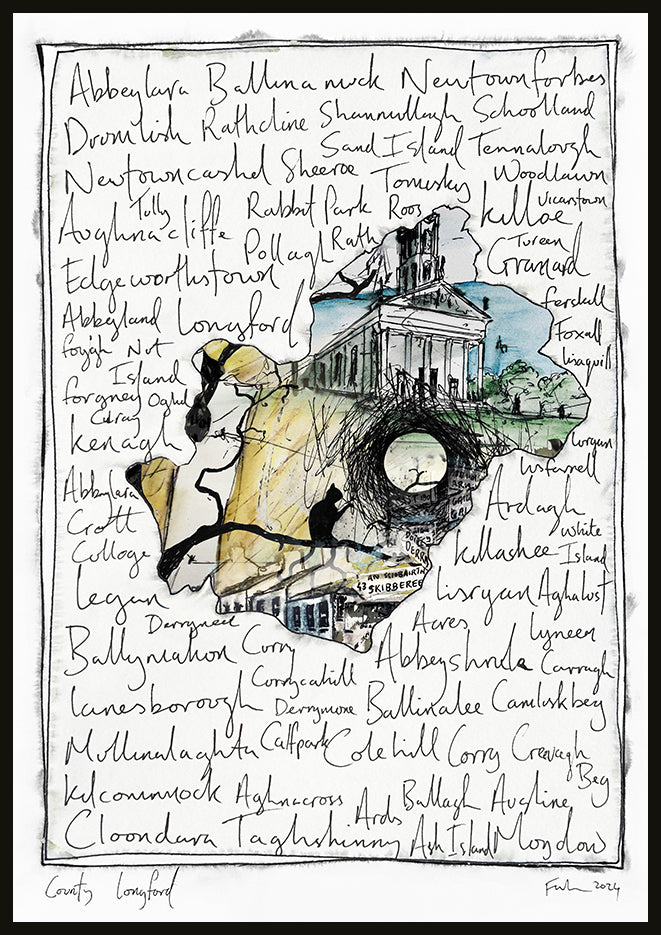 Abbeylara Ballinamuck Newtownforbes
Dromlish Rathcline Shanmullagh Schoolland
Sand Island Tennalough
Newtowncashel Sheeroe Tomisky Woodlawn
Tully Rabbit Park Roos Killoe Vicarstown
Aughnacliffe Pollagh Rath Tureen
Edgeworthstown Granard
Ferskill
Abbeyland Longford Foxall
Foygh Nut Lisaquill
Island
Forgney
Kenagh
Lisfarnell
Abbeylara Ardagh
Crott White
College Killashee Island
AN SCIOBAIRÍN
43 SKIBBEREE
Legan Lisryan Aghalust
Derryneel Acres Lyneen
Ballymahon Curry Abbeyshrule Carragh
Corrycahill
Lanesborough Derrymore Ballinalee Camliskbeg
Mullinalaghta Calfpark Colehill Corry Creevagh
Beg
Kilcommock Aghnacross Ards Ballagh Aughine
Cloondara Taghshinny Ash Island Moydow
County Longford
2024